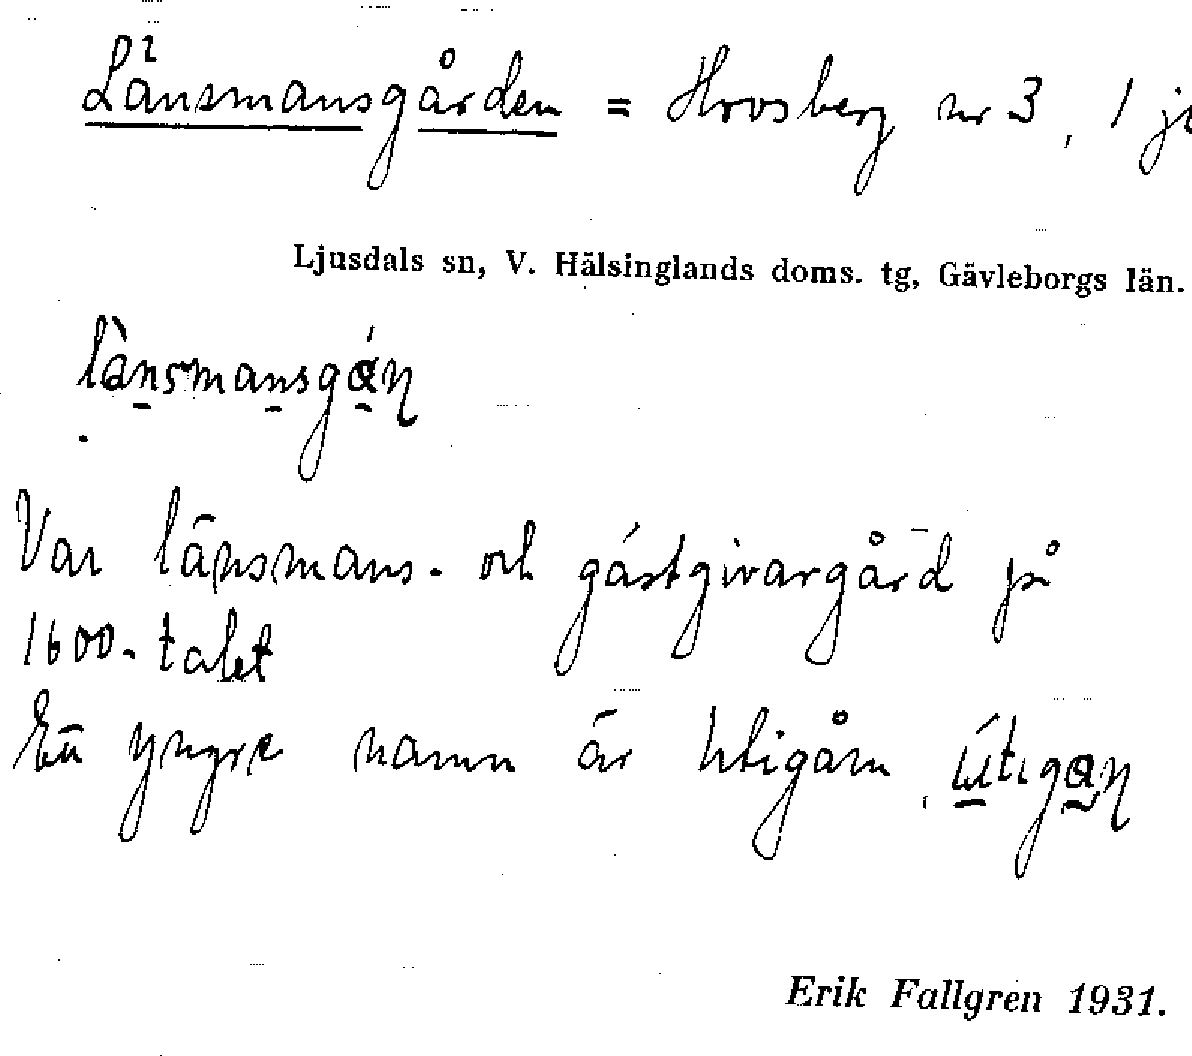 Länsmansgården = Hovsberg nr 3, 1 
Ljusdals sn, V. Hälsinglands doms. tg, Gävleborgs län.
länsmansgán
Var länsmans- och gästgivargård på
1600-talet
Ett yngre namn är Utigårn, útigan
Erik Fallgren 1931.